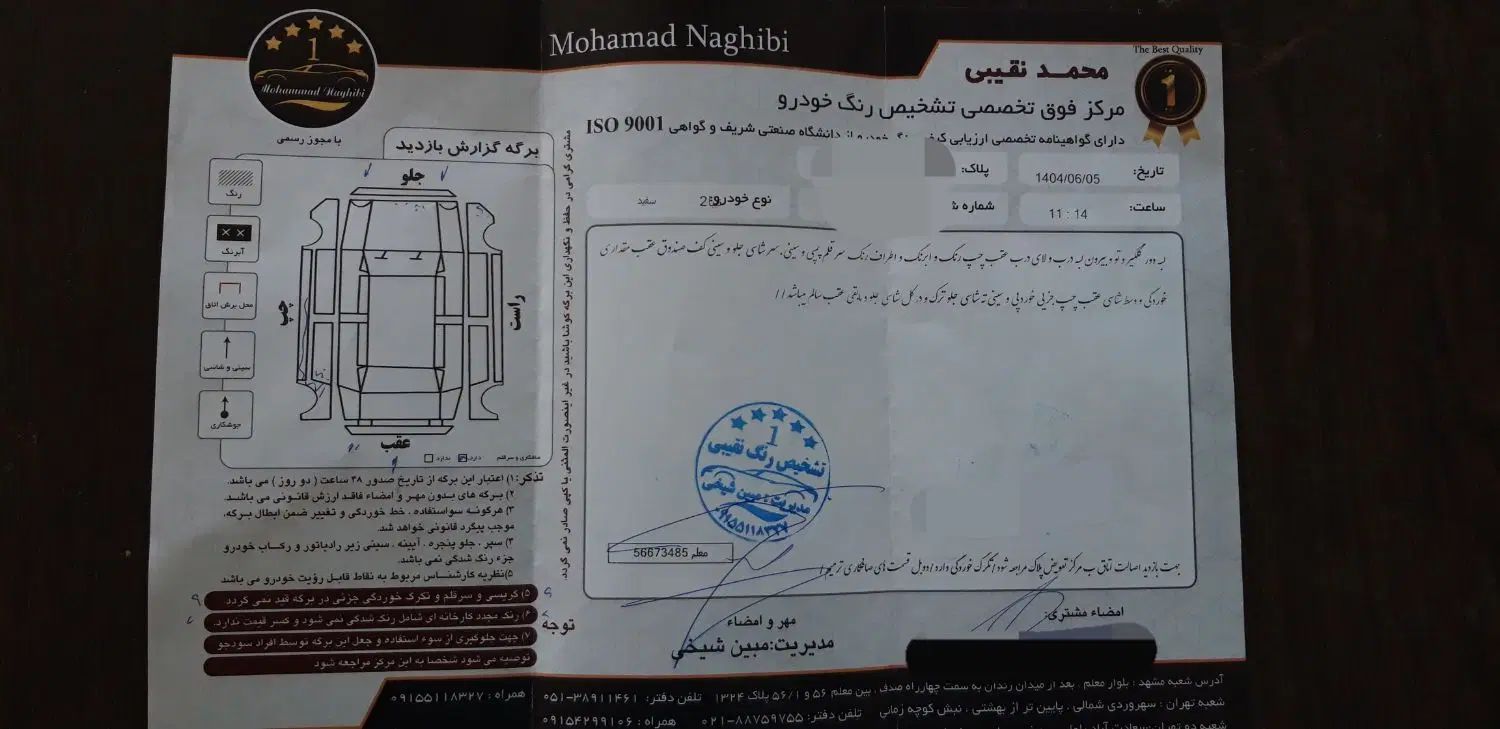 Mohamad Naghibi
The Best Quality
1
محمد نقیبی
مرکز فوق تخصصی تشخیص رنگ خودرو
دارای گواهینامه تخصصی ارزیابی دانشگاه صنعتی شریف و گواهی ISO 9001
تاریخ: 1404/06/05
پلاک:
ساعت: 11 : 14
شماره
نوع خودرو:
سفید
لبه دور گلگیر و تو و بیرون لبه درب و لای درب عقب چپ رنگ و ابرنگ و اطراف رنگ سر قلم پسی و سینی، سر شاسی جلو و سینی کف صندوق عقب مقداری
خوردگی و وسط شاسی عقب چپ جزیی خورد پی و سینی ته شاسی جلو ترک و در کل شاسی جلو و مابقی عقب سالم میباشد//
1
تشخیص رنگ نقیبی
مدیریت: مبین شیخی
۰۹۱۵۵۱۱۸۳۲۷
معلم 56673485
جهت بازدید اصالت اتاق ب مرکز تعویض پلاک مراجعه شود/تگرگ خوردگی دارد/دوبل قسمت های صافکاری ترمیم/
مهر و امضاء
مدیریت:مبین شیخی
امضاء مشتری:
1
Mohammad Naghibi
با مجوز رسمی
برگه گزارش بازدید
رنگ
آبرنگ
محل برش اتاق
سینی و شاسی
جوشکاری
جلو
چپ
راست
عقب
صافکاری و سرقلم دارد ندارد
مشتری گرامی در حفظ و نگهداری این برگه کوشا باشید در غیر اینصورت المثنی یا کپی صادر نمی گردد.
تذکر: ۱) اعتبار این برگه از تاریخ صدور ۴۸ ساعت ( دو روز ) می باشد.
۲) برگه های بدون مهر و امضاء فاقد ارزش قانونی می باشد.
۳) هرگونه سواستفاده ، خط خوردگی و تغییر ضمن ابطال برگه،
موجب پیگرد قانونی خواهد شد.
۴) سپر ، جلو پنجره ، آیینه ، سینی زیر رادیاتور و رکاب خودرو
جزء رنگ شدگی نمی باشد.
۵)نظریه کارشناس مربوط به نقاط قابل رؤیت خودرو می باشد
۵) گریسی و سرقلم و تگرگ خوردگی جزئی در برگه قید نمی گردد
۶) رنگ مجدد کارخانه ای شامل رنگ شدگی نمی شود و کسر قیمت ندارد.
۷) جهت جلوگیری از سوء استفاده و جعل این برگه توسط افراد سودجو
توصیه می شود شخصا به این مرکز مراجعه شود
توجه
آدرس شعبه مشهد : بلوار معلم ، بعد از میدان زندان به سمت چهارراه صدف ، بین معلم ۵۶ و ۵۶/۱ پلاک ۱۳۲۴ تلفن دفتر: ۰۵۱-۳۸۹۱۱۴۶۱ همراه : ۰۹۱۵۵۱۱۸۳۲۷
شعبه تهران : سهروردی شمالی ، پایین تر از بهشتی ، نبش کوچه زمانی تلفن دفتر: ۰۲۱-۸۸۷۵۹۷۵۵ همراه : ۰۹۱۵۴۲۹۹۱۰۶
شعبه دو تهران:سعادت آباد